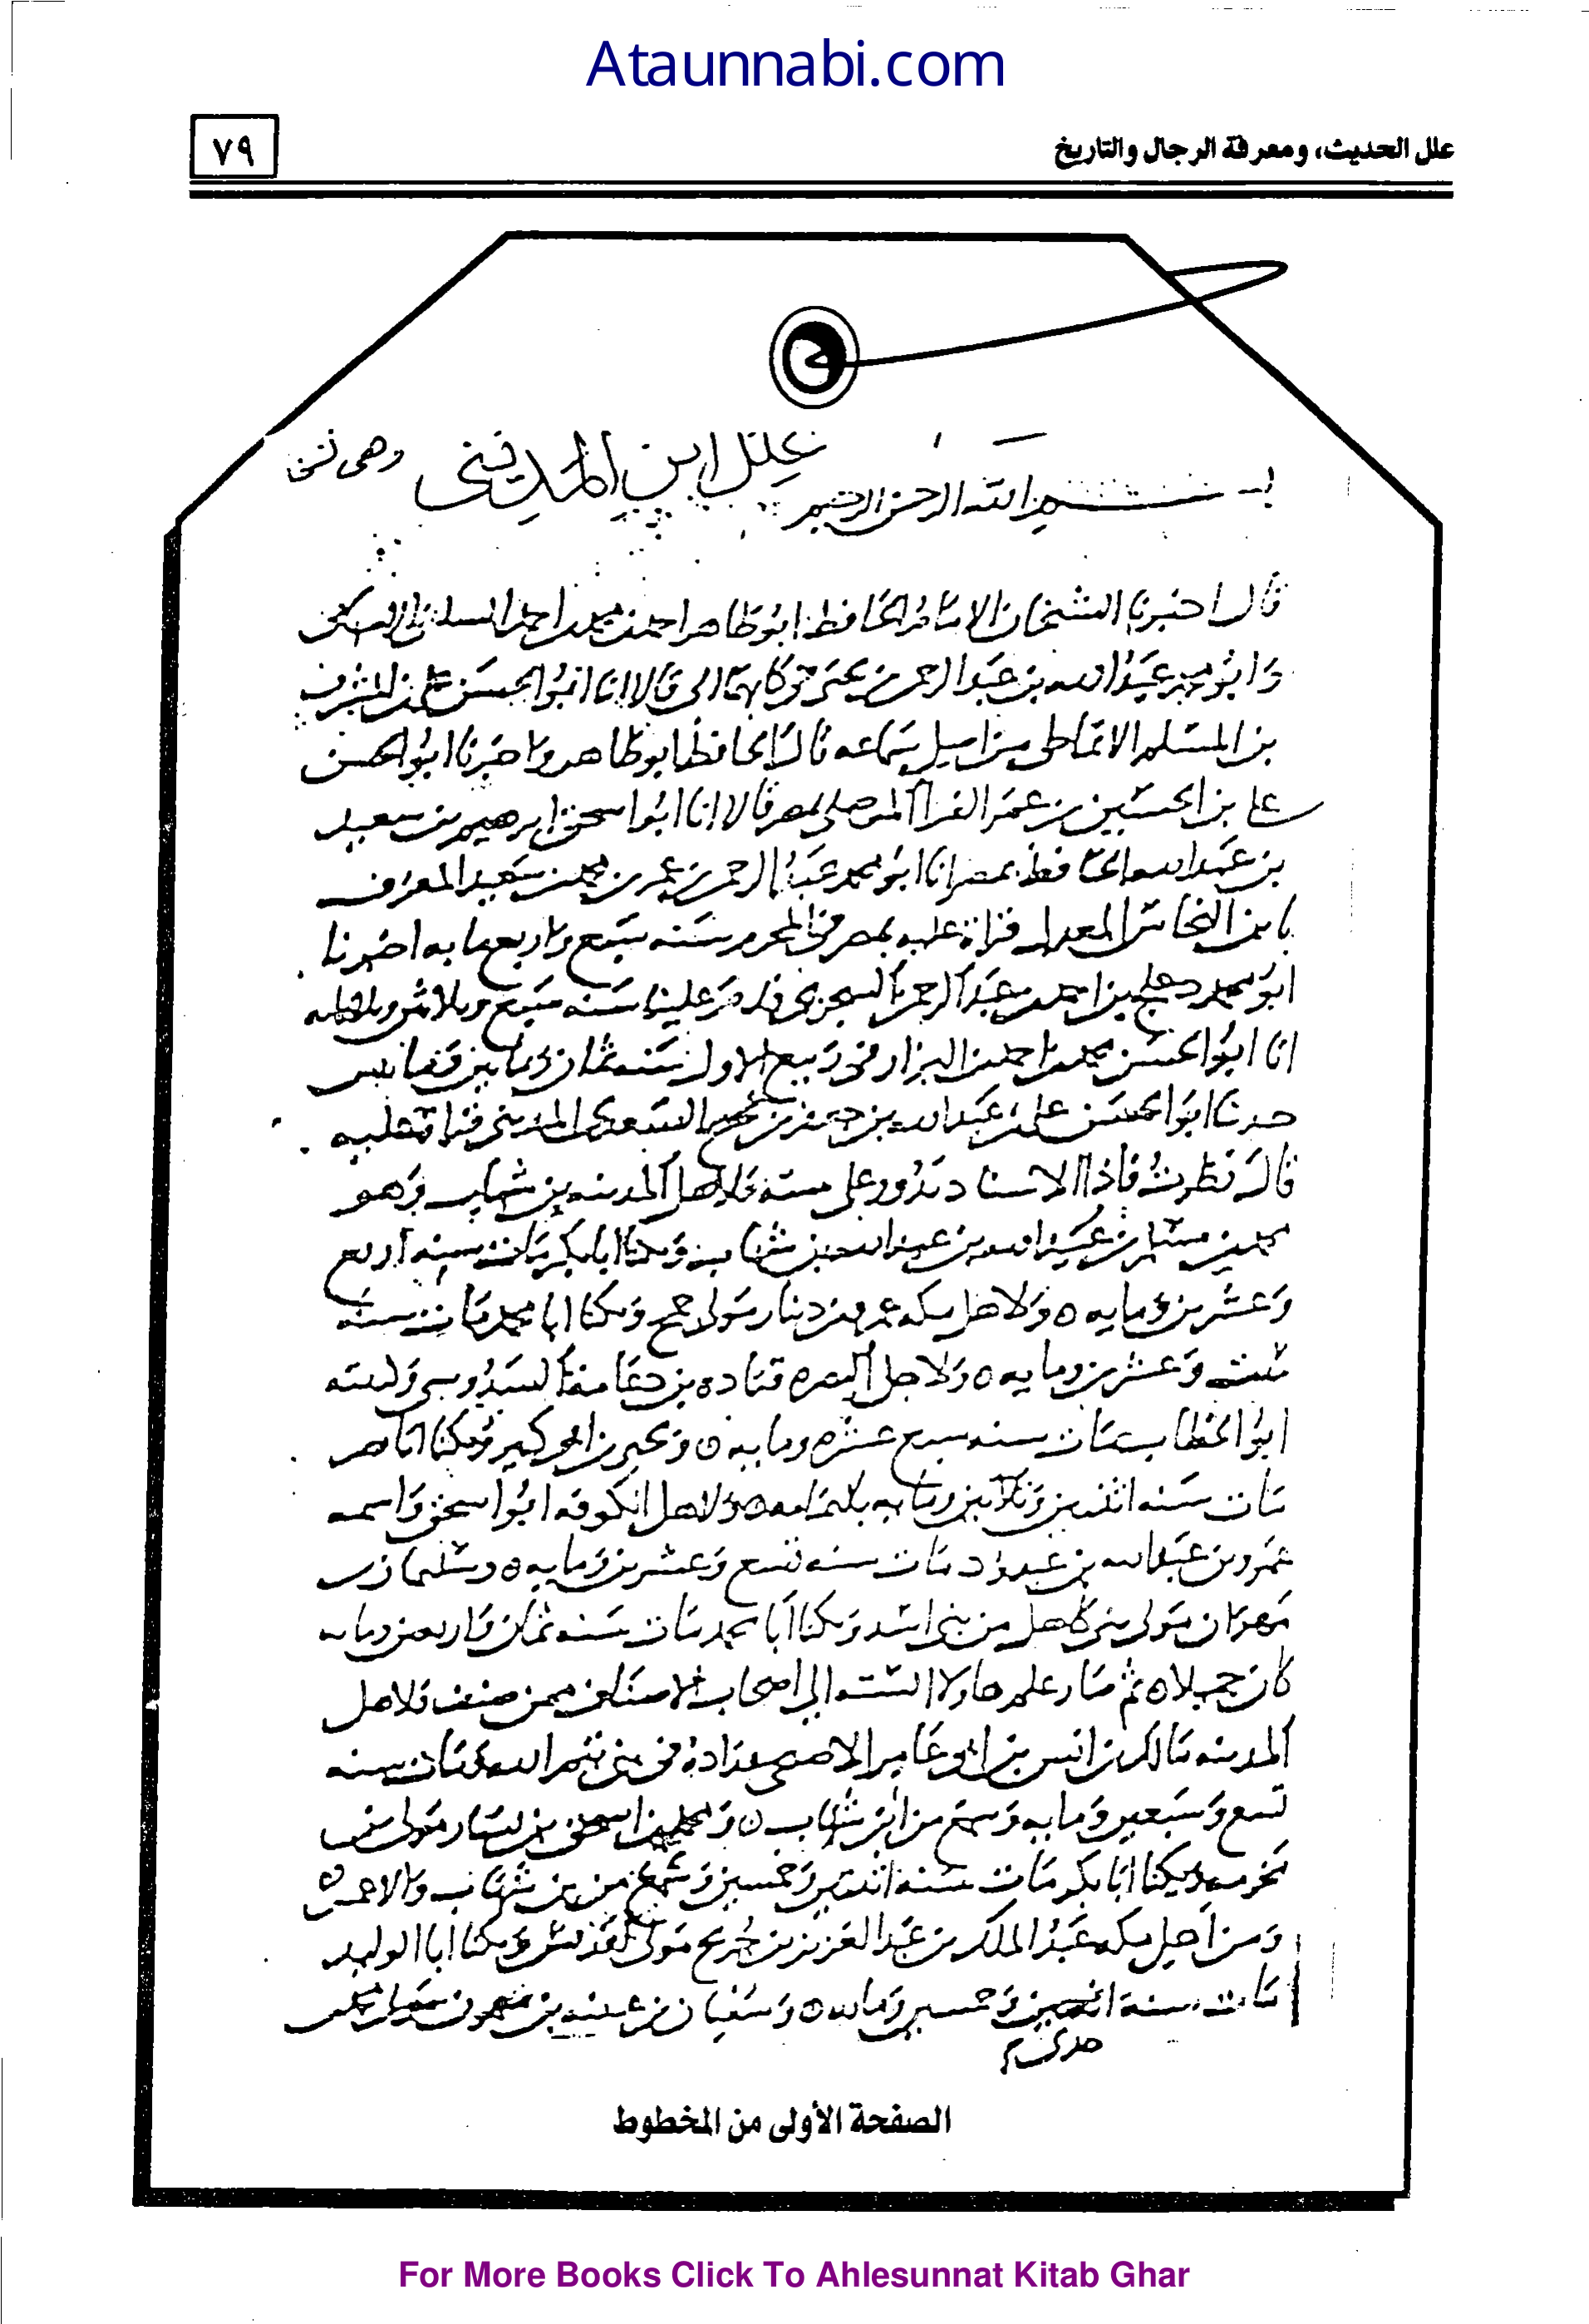 Ataunnabi.com
علل الحديث، ومعرفة الرجال والتاريخ
٧٩
علل ابن المديني
بسم الله الرحمن الرحيم
قال اخبرنا الشيخان الامام الحافظ ابو طاهر احمد بن محمد بن احمد السلفي
وابو محمد عبد الله بن عبد الرحمن بن يحيى قالا انا ابو الحسن علي بن المشرف
بن المسلم الانماطي من اصل سماعه قال الحافظ ابو طاهر واخبرنا ابو الحسن
علي بن الحسين بن عمر الفرا الموصلي بمصر قالا انا ابو اسحق ابرهيم بن سعيد
بن عبد الله الحافظ بمصر انا ابو محمد عبد الرحمن بن عمر بن محمد بن سعيد المعروف
بابن النحاس المعدل قراة عليه بمصر في المحرم سنه سبع واربعمايه اخبرنا
ابو محمد دعلج بن احمد بن عبد الرحمن السجزي قدم علينا سنه سبع وثلاثين وثلثمايه
انا ابو الحسن محمد بن احمد بن البرا في ربيع الاول سنه ثمان وثمانين
حدثنا ابو الحسن علي بن عبد الله بن جعفر بن نجيح السعدي المديني قراة عليه
قال نظرت فاذا الاسناد يدور على ستة فلاهل المدينه بن شهاب وهو
محمد بن مسلم بن عبيد الله بن عبد الله بن شهاب ويكنا ابا بكر مات سنه اربع
وعشرين ومايه ٥ ولاهل مكه عمرو بن دينار مولى جمح ويكنا ابا محمد مات سنه
ست وعشرين ومايه ٥ ولاهل البصره قتاده بن دعامة السدوسي وكنيته
ابو الخطاب مات سنه سبع عشره ومايه ٥ ويحيى بن ابي كثير ويكنا ابا نصر
مات سنه اثنتين وثلاثين ومايه باليمامه ٥ ولاهل الكوفه ابو اسحق واسمه
عمرو بن عبد الله بن عبيد مات سنه تسع وعشرين ومايه ٥ وسليمان بن
مهران مولى بني كاهل من بني اسد ويكنا ابا محمد مات سنه ثمان واربعين ومايه
كان جميلا ٥ ثم صار علم هاولا الستة الى اصحاب الاصناف ممن صنف فلاهل
المدينه مالك بن انس بن ابي عامر الاصبحي عداده في بني تيم الله مات سنه
تسع وسبعين ومايه وسمع من ابن شهاب ٥ ومحمد بن اسحق بن يسار مولى بني
مخرمه ويكنا ابا بكر مات سنه اثنتين وخمسين وسمع من بن شهاب والاعمش
ومن اهل مكه عبد الملك بن عبد العزيز بن جريج مولى لقريش ويكنا ابا الوليد
مات سنة احدى وخمسين ومايه ٥ وسفيان بن عيينه بن ميمون مولى محمد
الصفحة الأولى من المخطوط
For More Books Click To Ahlesunnat Kitab Ghar